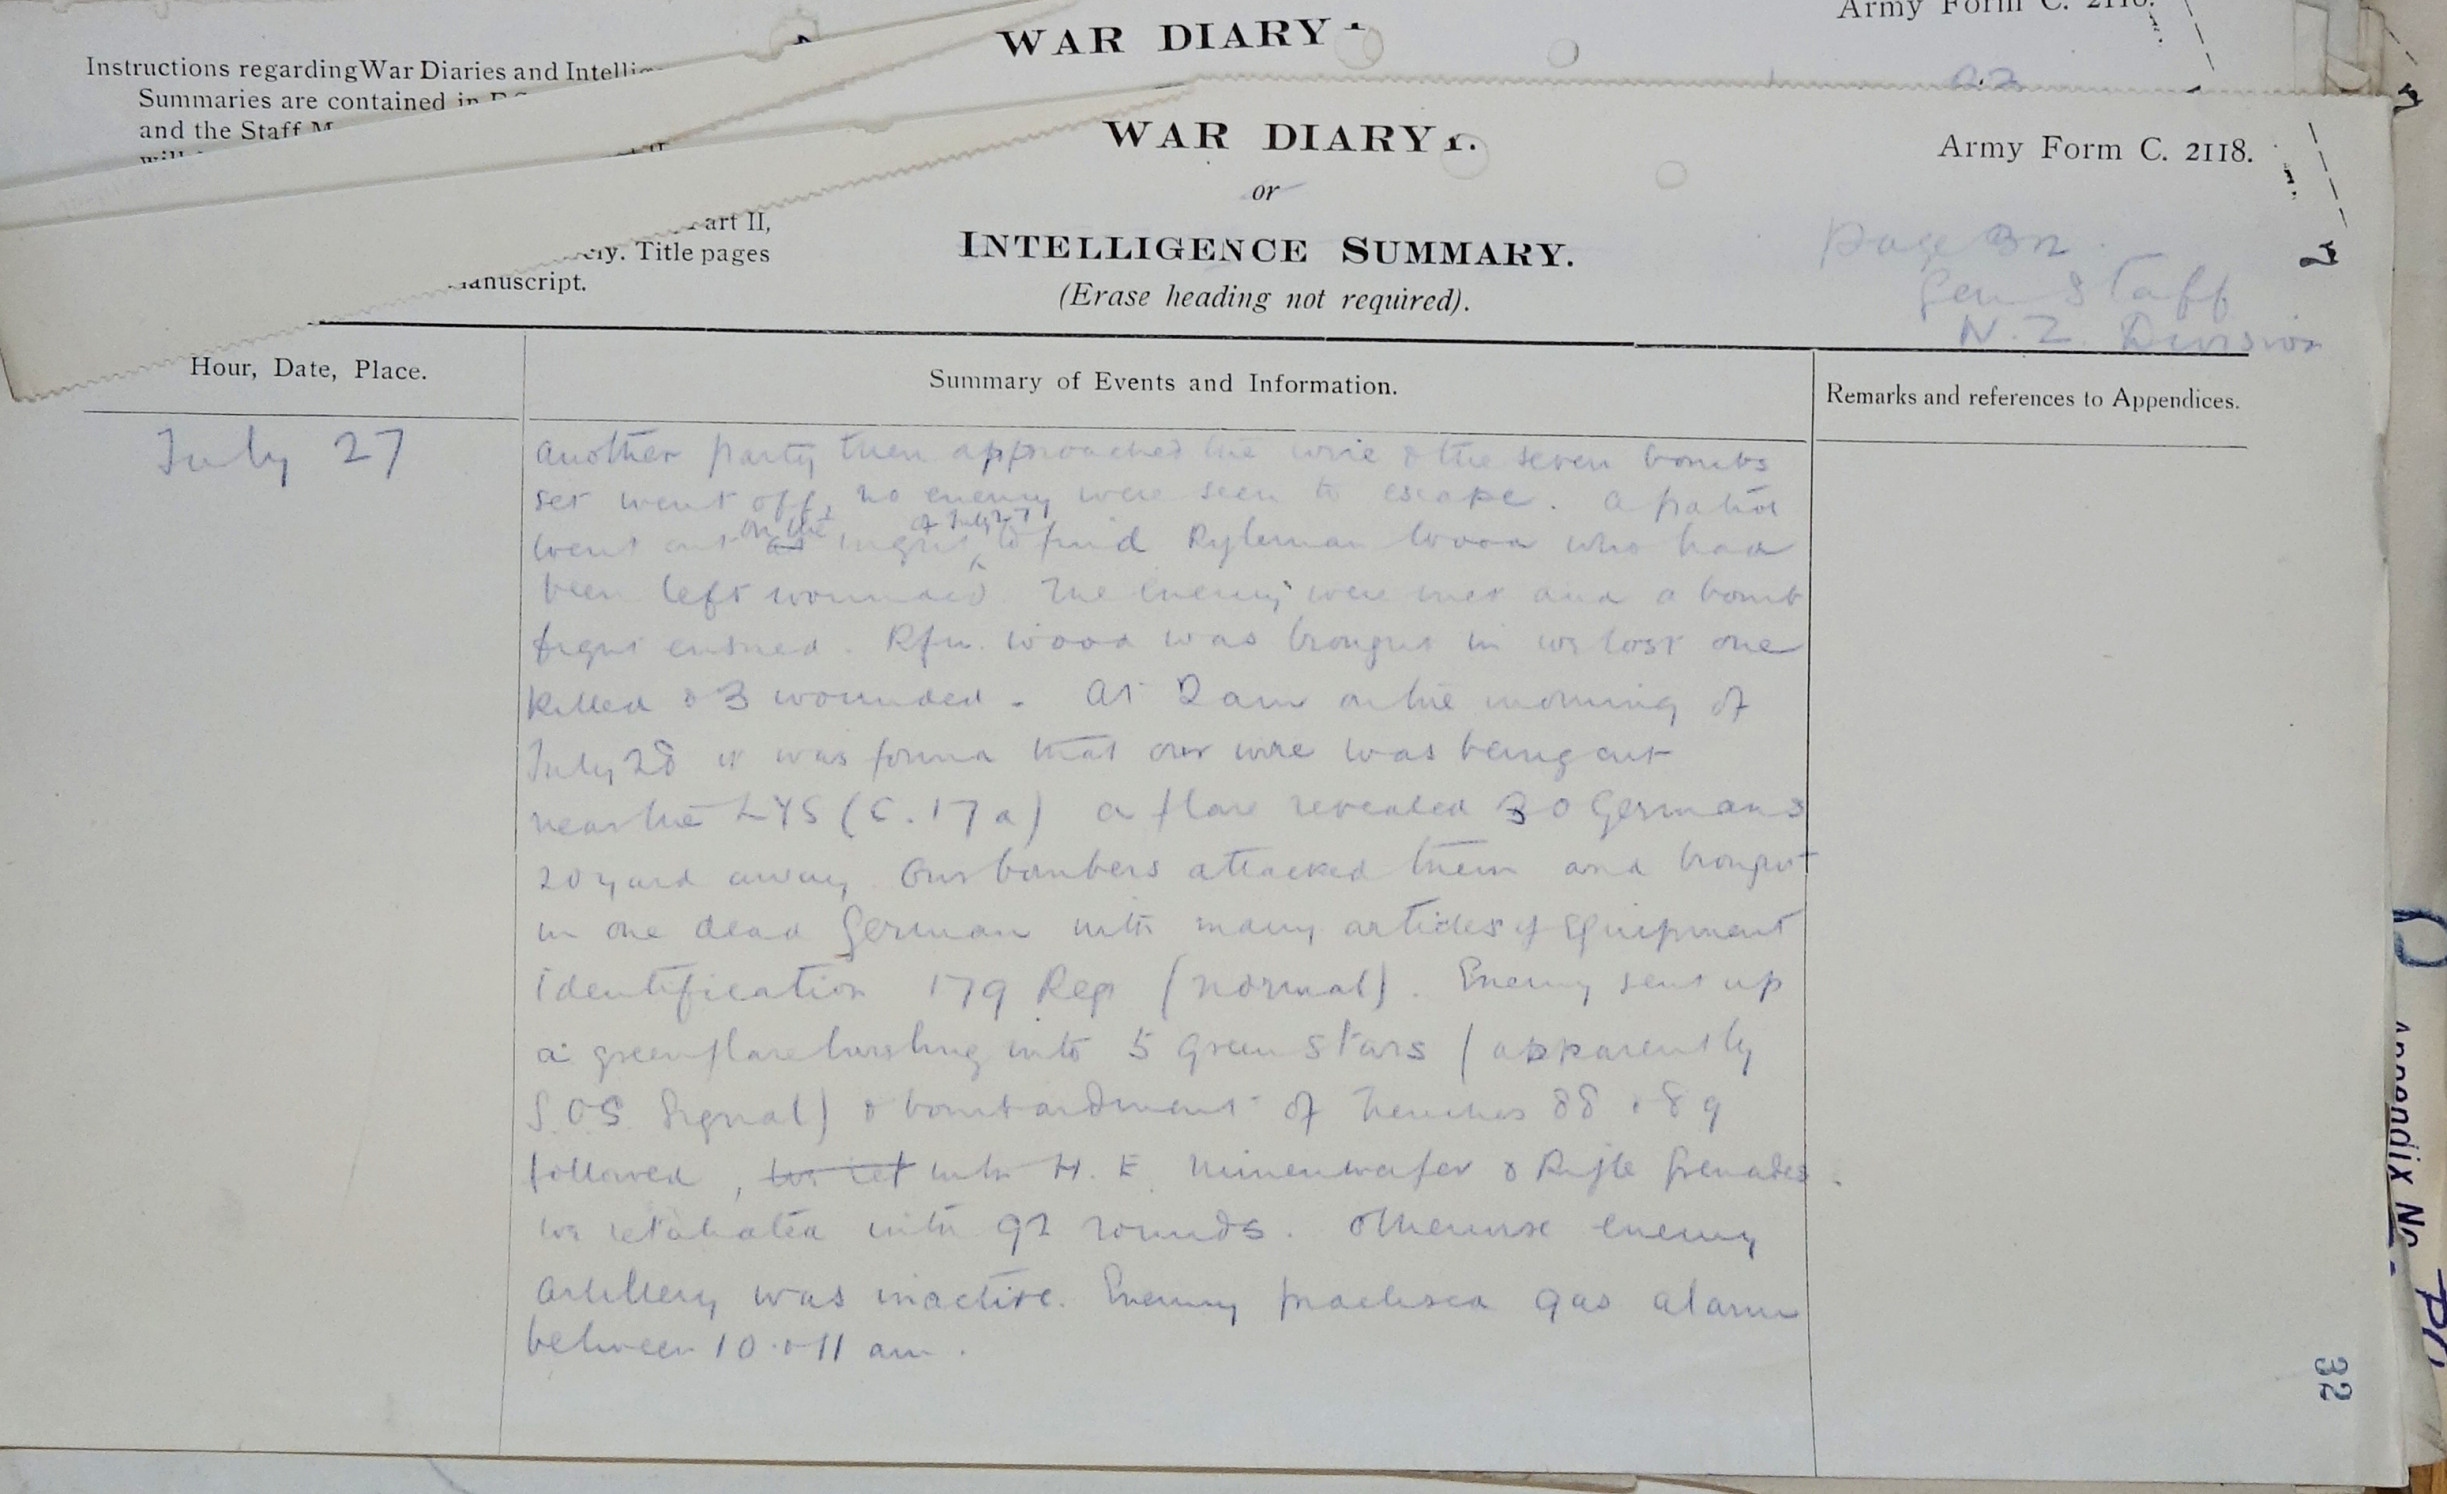 WAR DIARY
Army Form C. 2118.
Instructions regarding War Diaries and
Summaries are contained in
and the Staff
WAR DIARY
Army Form C. 2118.
or
art II,
INTELLIGENCE SUMMARY.
Title pages
manuscript.
(Erase heading not required).
Page 32.
Gen Staff
N.Z. Division
Hour, Date, Place.
Summary of Events and Information.
Remarks and references to Appendices.
July 27
another party then approached the wire & the seven bombs
set went off, no enemy were seen to escape. A patrol
went out on the night of July 27 to find Ryfleman Wood who had
been left wounded. The enemy were met and a bomb
fight ensued. Rfn. Wood was brought in we lost one
killed & 3 wounded. At 2 am on the morning of
July 28 it was found that our wire was being cut
near the LYS (C.17a) a flare revealed 30 Germans
20 yard away. Our bombers attacked them and brought
in one dead German with many articles of Equipment
identification 179 Reg (normal). Enemy sent up
a green flare bursting into 5 green stars (apparently
S.O.S. Signal) & bombardment of Trenches 88 & 89
followed, with H.E. Minenwafer & Rifle Grenades.
We retaliated with 92 rounds. Otherwise enemy
artillery was inactive. Enemy practised gas alarm
between 10 & 11 am.
32
Appendix No.